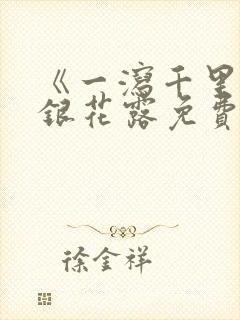 《一瀉千里
銀花露免費
徐金祥